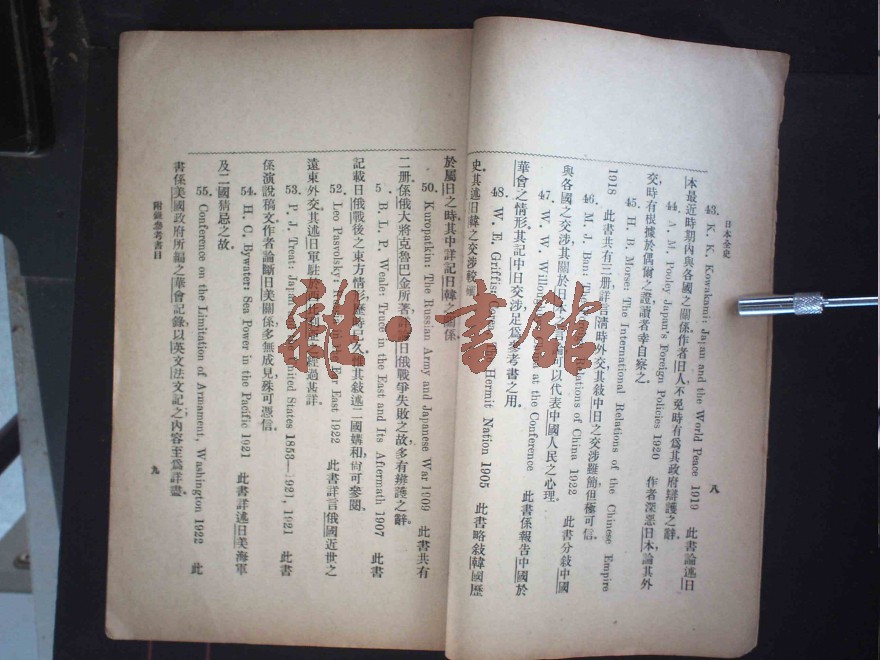 日本全史
八
43. K. K. Kawakami: Japan and the World Peace 1919 此書論述日
本最近時期內與各國之關係作者日人不免時有爲其政府辯護之辭。
44. A. M. Pooley Japan's Foreign Policies 1920 作者深惡日本論其外
交時有根據於偶爾之證讀者幸自察之。
45. H. B. Morse: The International Relations of the Chinese Empire
1918 此書共有三册詳言淸時外交其敍中日之交涉雖簡但極可信。
46. M. J. Bau: The Relations of China 1922 此書分敍中國
與各國之交涉其關於日本可以代表中國人民之心理。
47. W. W. at the Conference 此書係報告中國於
華會之情形其記中日交涉足爲參考書之用。
48. W. E. Griffis Hermit Nation 1905 此書略敍韓國歷
史。其述日韓之交涉較
於屬日之時其中詳記日韓關係。
50. Kuropatkin: The Russian Army and Japanese War 1909 此書共有
二册係俄大將克魯巴金所著日俄戰爭失敗之故多有辨護之辭。
5 . B. L. P. Weale: Truce in the East and Its Aftermath 1907 此書
記載日俄戰後之東方情形歷時已久惟其敍述二國媾和尙可參閱。
52. Leo Pasvolsky Far East 1922 此書詳言俄國近世之
遠東外交其述日軍駐於西比利亞經過甚詳。
53. P. J. Treat: Japan United States 1853—1921, 1921 此書
係演說稿文作者論斷日美關係多無成見殊可憑信。
54. H. C. Bywater: Sea Power in the Pacific 1921 此書詳述日美海軍
及二國猜忌之故。
55. Conference on the Limitation of Armament, Washington 1922 此
書係美國政府所編之華會記錄以英文法文記之內容至爲詳盡。
附錄參考書目
九
雜·書館